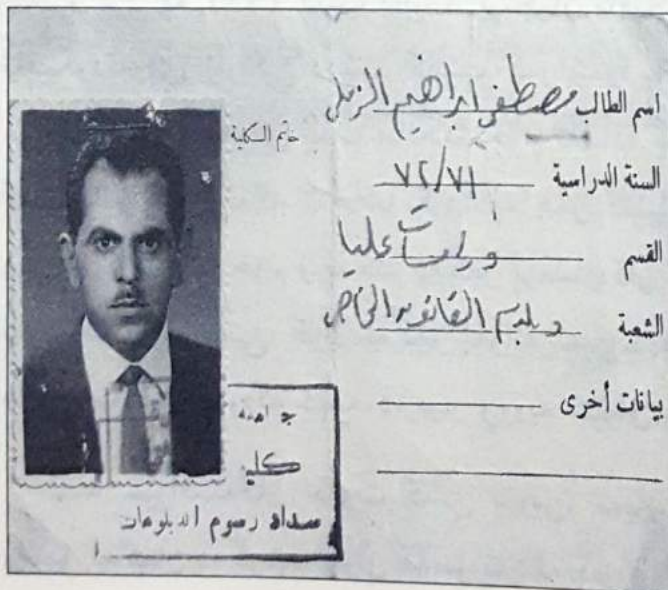 اسم الطالب مصطفى ابراهيم الزلمي
ختم الكلية
السنة الدراسية ٧٢/٧١
القسم دراسات عليا
الشعبة دبلوم القانون الخاص
بيانات أخرى
جامعة
كلية
سداد رسوم الدبلومات